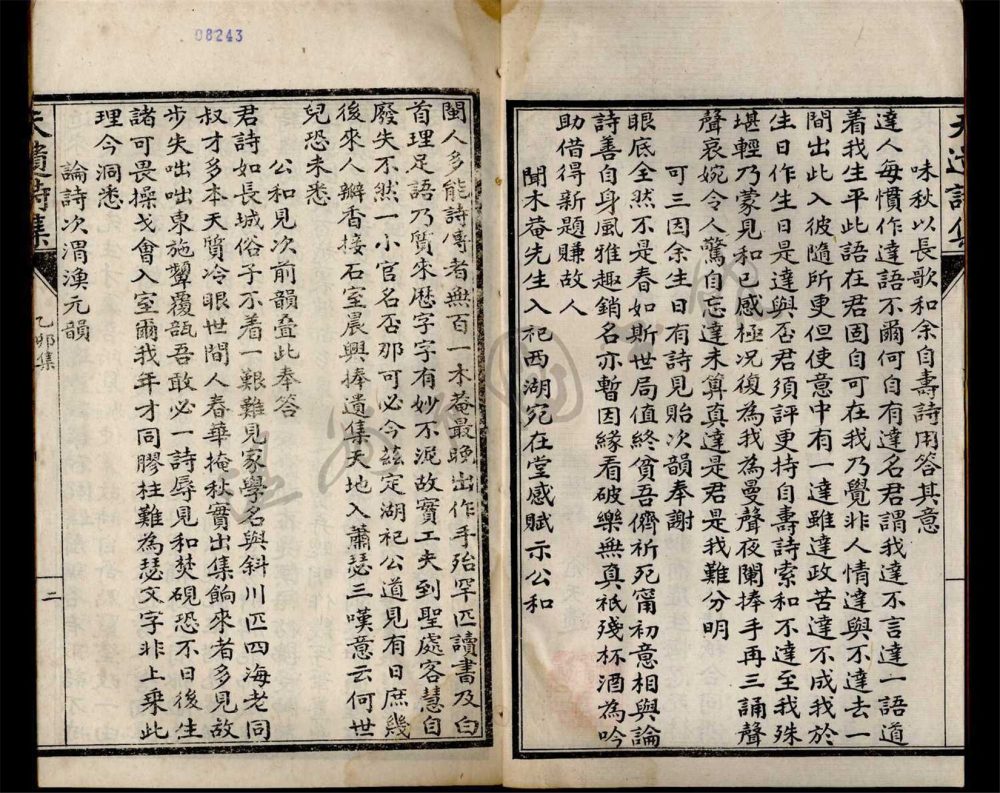 味秋以長歌和余自壽詩用答其意
達人每慣作達語不爾何自有達名君謂我達不言達一語道
着我生平此語在君固自可在我乃覺非人情達與不達去一
間出此入彼隨所更但使意中有一達雖達政苦達不成我於
生日作生日是達與否君須評更持自壽詩索和不達至我殊
堪輕乃蒙見和已感極況復為我為曼聲夜闌捧手再三誦聲
聲哀婉令人驚自忘達未算真達是君是我難分明
可三因余生日有詩見貽次韻奉謝
眼底全然不是春如斯世局值終貧吾儕祈死甯初意相與論
詩善自身風雅趣銷名亦暫因緣看破樂無真祇殘杯酒為吟
助借得新題賺故人
聞木菴先生入祀西湖宛在堂感賦示公和
閩人多能詩傳者無百一木菴最晚出作手殆罕匹讀書及白
首理足語乃質來歷字字有妙不泥故實工夫到聖處容慧自
廢失不然一小官名否那可必今茲定湖祀公道見有日庶幾
後來人瓣香接石室晨興捧遺集天地入蕭瑟三嘆意云何世
兒恐未悉
公和見次前韻叠此奉答
君詩如長城俗子不着一艱難見家學名與斜川匹四海老同
叔才多本天質冷眼世間人春華掩秋實出集餉來者多見故
步失咄咄東施顰覆瓿吾敢必一詩辱見和焚硯恐不日後生
諸可畏操戈會入室爾我年才同膠柱難為瑟文字非上乘此
理今洞悉
論詩次渭漁元韻
乙卯集
二
08243